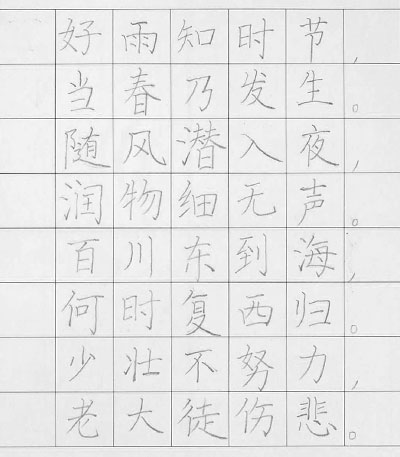 好雨知时节,
当春乃发生。
随风潜入夜,
润物细无声。
百川东到海,
何时复西归。
少壮不努力,
老大徒伤悲。